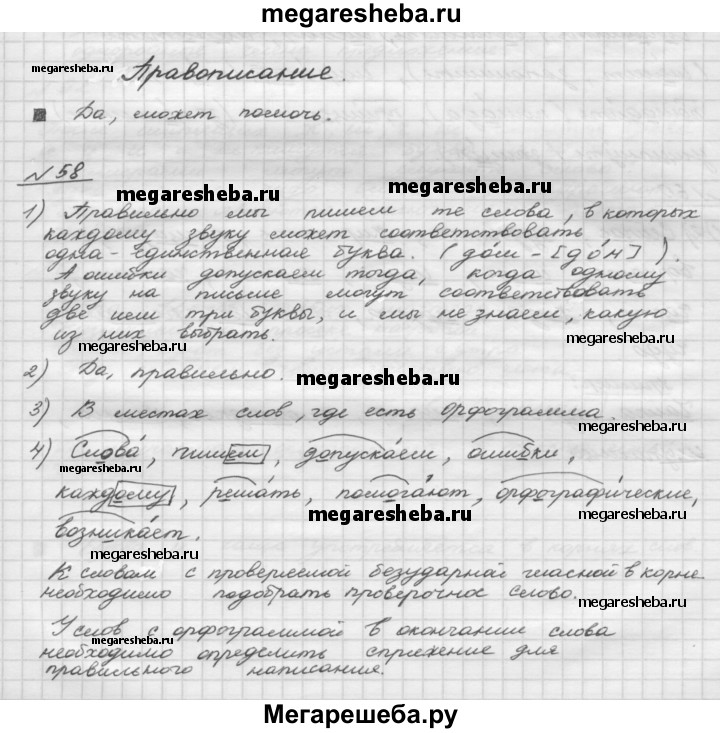 megaresheba.ru
megaresheba.ru
Правописание.
Да, может помочь.
№ 58
megaresheba.ru
megaresheba.ru
1) Правильно мы пишем те слова, в которых
каждому звуку может соответствовать
одна-единственная буква. (до́м - [до́м]).
А ошибки допускаем тогда, когда одному
звуку на письме могут соответствовать
две или три буквы, и мы не знаем, какую
из них выбрать.
megaresheba.ru
megaresheba.ru
2) Да, правильно.
megaresheba.ru
3) В местах слов, где есть орфограмма.
megaresheba.ru
4) Слова́, пишем, допуска́ем, оши́бки,
megaresheba.ru
каждому, реша́ть, помога́ют, орфографи́ческие,
megaresheba.ru
возника́ет.
megaresheba.ru
К словам с проверяемой безударной гласной в корне
необходимо подобрать проверочное слово.
megaresheba.ru
У слов с орфограммой в окончании слова
необходимо определить спряжение для
правильного написания.
megaresheba.ru
Мегарешеба.ру